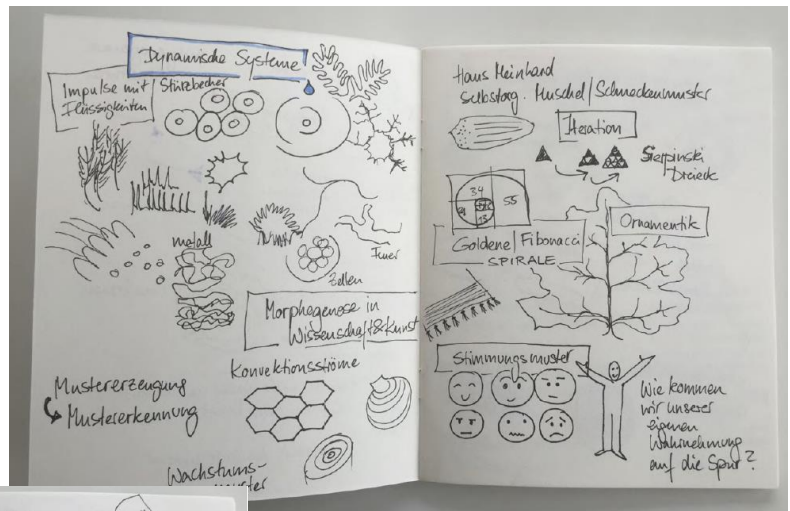 Dynamische Systeme
Impulse mit
Flüssigkeiten
Stürzbecher
Feuer
Zellen
Morphogenese in
Wissenschaft & Kunst
Konvektionsströme
Mustererzeugung
Mustererkennung
Wachstums-
Hans Meinhard
selbstorg. Muschel/Schneckenmuster
Iteration
Sierpinski
Dreieck
34
55
13
Ornamentik
Goldene/Fibonacci
SPIRALE
Stimmungsmuster
Wie kommen
wir unserer
eigenen
Wahrnehmung
auf die Spur?